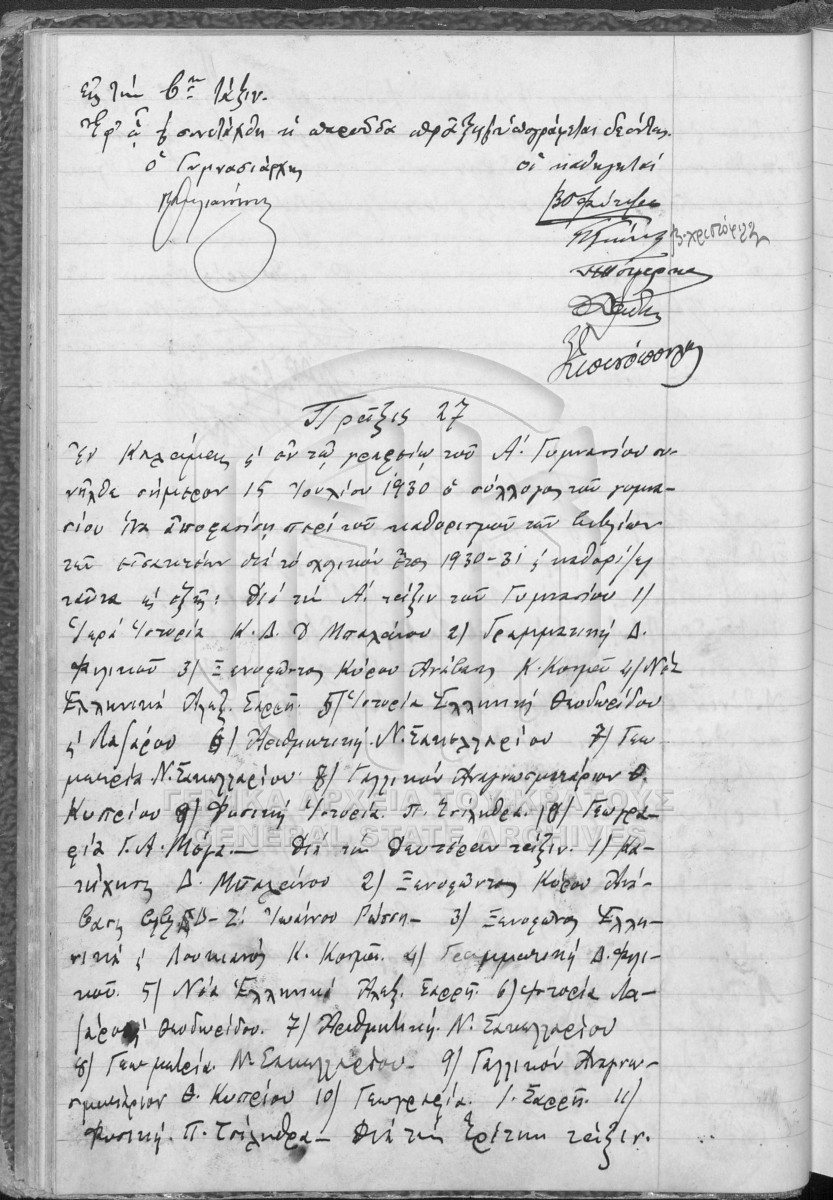 εἰς τὴν Βαν τάξιν.
Ἐφ' ᾧ συνετάχθη ἡ παροῦσα πρᾶξις ὑπογράφεται δεόντως.
ὁ Γυμνασιάρχης οἱ καθηγηταί
Β. Χριστόφιλος
Πρᾶξις 27
Ἐν Καλάμαις ἐν τῷ γραφείῳ τοῦ Α΄. Γυμνασίου συ-
νῆλθε σήμερον 15 Ἰουλίου 1930 ὁ σύλλογος τοῦ γυμνα-
σίου ἵνα ἀποφασίσῃ περὶ τοῦ καθορισμοῦ τῶν βιβλίων
τῶν εἰσακτέων διὰ τὸ σχολικὸν ἔτος 1930-31 καθορίζει
ταῦτα ὡς ἑξῆς: Διὰ τὴν Α΄. τάξιν τοῦ Γυμνασίου 1)
Ἱερὰ Ἱστορία Κ.Δ. Δ Μπαλάνου 2) Γραμματική Δ.
3) Ξενοφῶντος Κύρου Ἀνάβασις Κ. Κοσμᾶ 4) Νέα
Ἑλληνικά Ἀλεξ. Σαρρῆ. 5) Ἱστορία Ἑλληνική Θεοδωρίδου
& Λαζάρου 6) Ἀριθμητική Ν. Σακελλαρίου 7) Γεω
μετρία Ν. Σακελλαρίου 8) Γαλλικόν Ἀναγνωσματάριον Θ.
Κυπρίου 9) Φυσική Ἱστορία. Π. Τσίληθρα. 10) Γεωγρα-
φία Γ. Α. Μέγα.— Διὰ τὴν Δευτέραν τάξιν. 1) Κα-
τήχησις Δ. Μπαλάνου 2) Ξενοφῶντος Κύρου Ἀνά-
βασις Ἰωάννου Ρώσση— 3) Ξενοφῶντος Ἑλλη-
νικά & Λουκιανός Κ. Κοσμᾶ. 4) Γραμματική Δ.
5) Νέα Ἑλληνικά Ἀλεξ. Σαρρῆ. 6) Ἱστορία Λα-
ζάρου & Θεοδωρίδου. 7) Ἀριθμητική. Ν. Σακελλαρίου
8) Γεωμετρία. Ν. Σακελλαρίου— 9) Γαλλικόν Ἀναγνω-
σματάριον Θ. Κυπρίου 10) Γεωγραφία. Ι. Σαρρῆ. 11)
Φυσική. Π. Τσίληθρα— Διὰ τὴν Τρίτην τάξιν.
ΓΕΝΙΚΑ ΑΡΧΕΙΑ ΤΟΥ ΚΡΑΤΟΥΣ
GENERAL STATE ARCHIVES